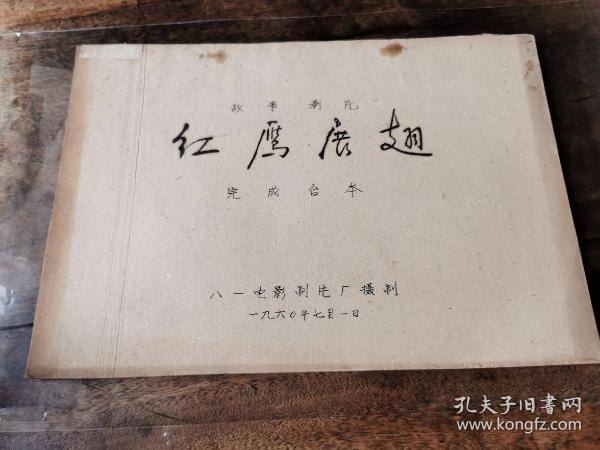 故事影片
红鹰展翅
完成台本
八一电影制片厂摄制
一九六〇年七月一日
孔夫子旧書网
www.kongfz.com